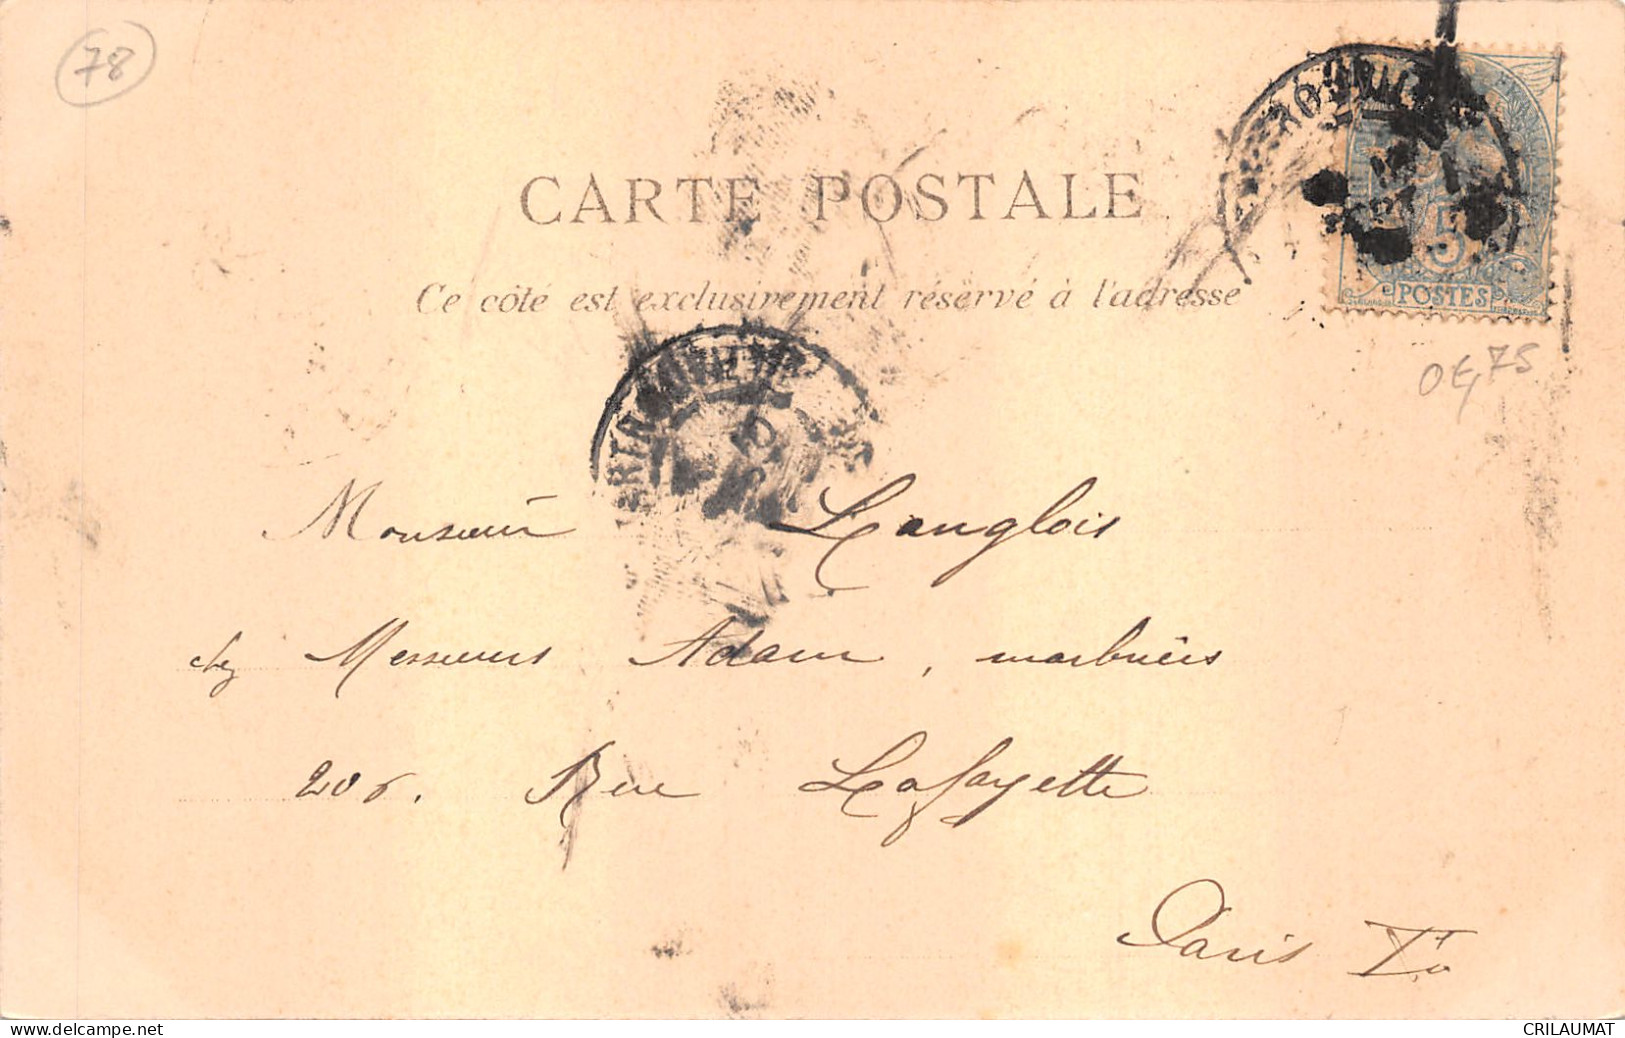 78
CARTE POSTALE
Ce côté est exclusivement réservé à l'adresse
5
POSTES
0€,75
Monsieur Langlois
chez Messieurs Adam, marbriers
206. Rue Lafayette
Paris Xe
www.delcampe.net
CRILAUMAT